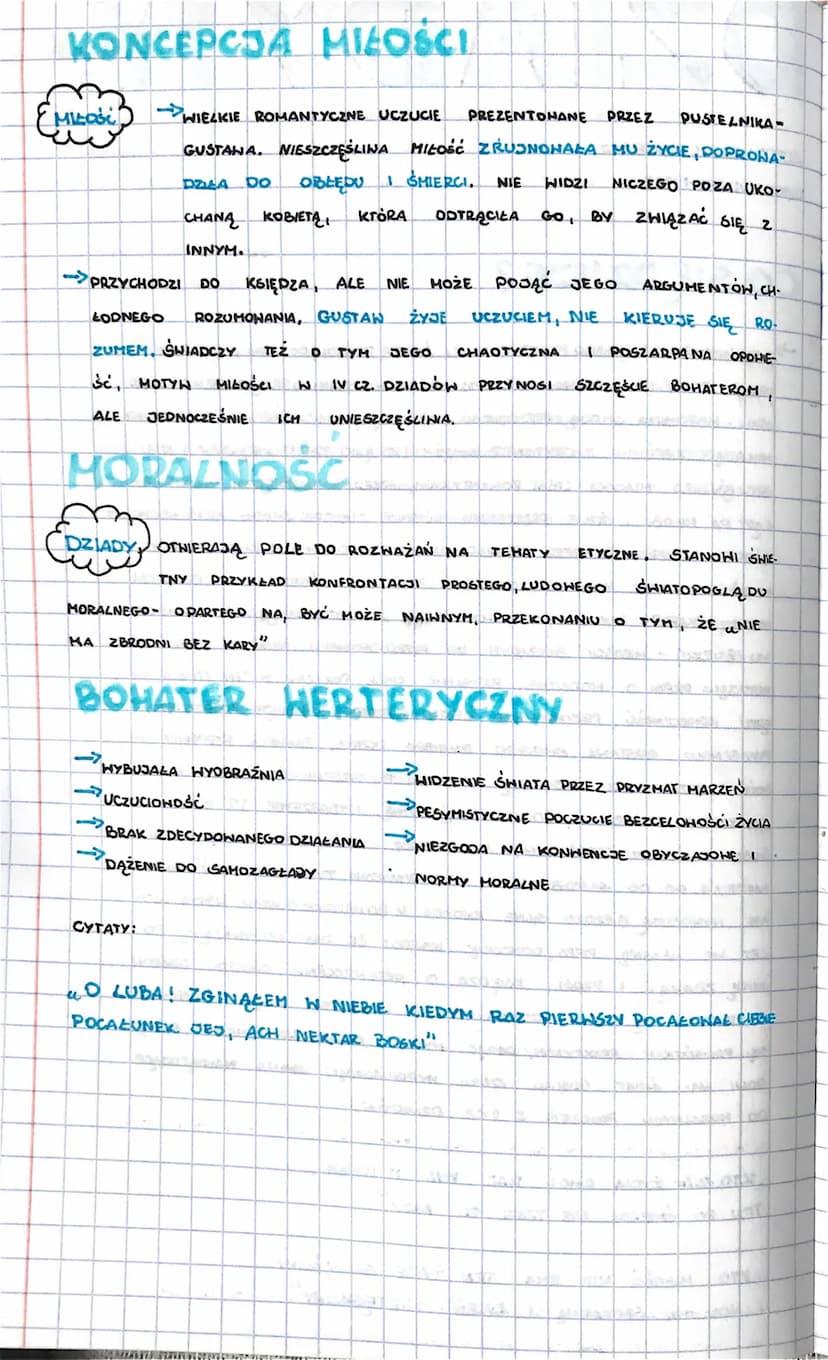 KONCEPCJA MIŁOŚCI
MIŁOŚĆ → WIELKIE ROMANTYCZNE UCZUCIE PREZENTOWANE PRZEZ PUSTELNIKA-
GUSTAWA. NIESZCZĘŚLIWA MIŁOŚĆ ZRUJNOWAŁA MU ŻYCIE, DOPROWA-
DZIŁA DO OBŁĘDU I ŚMIERCI. NIE WIDZI NICZEGO POZA UKO-
CHANĄ KOBIETĄ, KTÓRA ODTRĄCIŁA GO, BY ZWIĄZAĆ SIĘ Z
INNYM.
→ PRZYCHODZI DO KSIĘDZA, ALE NIE MOŻE POJĄĆ JEGO ARGUMENTÓW, CH-
ŁODNEGO ROZUMOWANIA, GUSTAW ŻYJE UCZUCIEM, NIE KIERUJE SIĘ RO-
ZUMEM. ŚWIADCZY TEŻ O TYM JEGO CHAOTYCZNA I POSZARPANA OPOWIE-
ŚĆ, MOTYW MIŁOŚCI W IV CZ. DZIADÓW PRZYNOSI SZCZĘŚCIE BOHATEROM,
ALE JEDNOCZEŚNIE ICH UNIESZCZĘŚLIWIA.
MORALNOŚĆ
DZIADY, OTWIERAJĄ POLE DO ROZWAŻAŃ NA TEMATY ETYCZNE. STANOWI ŚWIE-
TNY PRZYKŁAD KONFRONTACJI PROSTEGO, LUDOWEGO ŚWIATOPOGLĄDU
MORALNEGO- OPARTEGO NA, BYĆ MOŻE NAIWNYM, PRZEKONANIU O TYM, ŻE „NIE
MA ZBRODNI BEZ KARY"
BOHATER WERTERYCZNY
→ WYBUJAŁA WYOBRAŹNIA
→ UCZUCIOWOŚĆ
→ BRAK ZDECYDOWANEGO DZIAŁANIA
→ DĄŻENIE DO SAMOZAGŁADY
→ WIDZENIE ŚWIATA PRZEZ PRYZMAT MARZEŃ
→ PESYMISTYCZNE POCZUCIE BEZCELOWOŚCI ŻYCIA
→ NIEZGODA NA KONWENCJE OBYCZAJOWE I
NORMY MORALNE
CYTATY:
„O LUBA! ZGINĄŁEM W NIEBIE KIEDYM RAZ PIERWSZY POCAŁOWAŁ CIEBIE
POCAŁUNEK JEJ, ACH NEKTAR BOSKI".